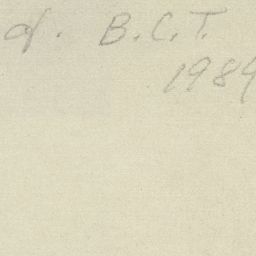 d. B.C.T.
1989